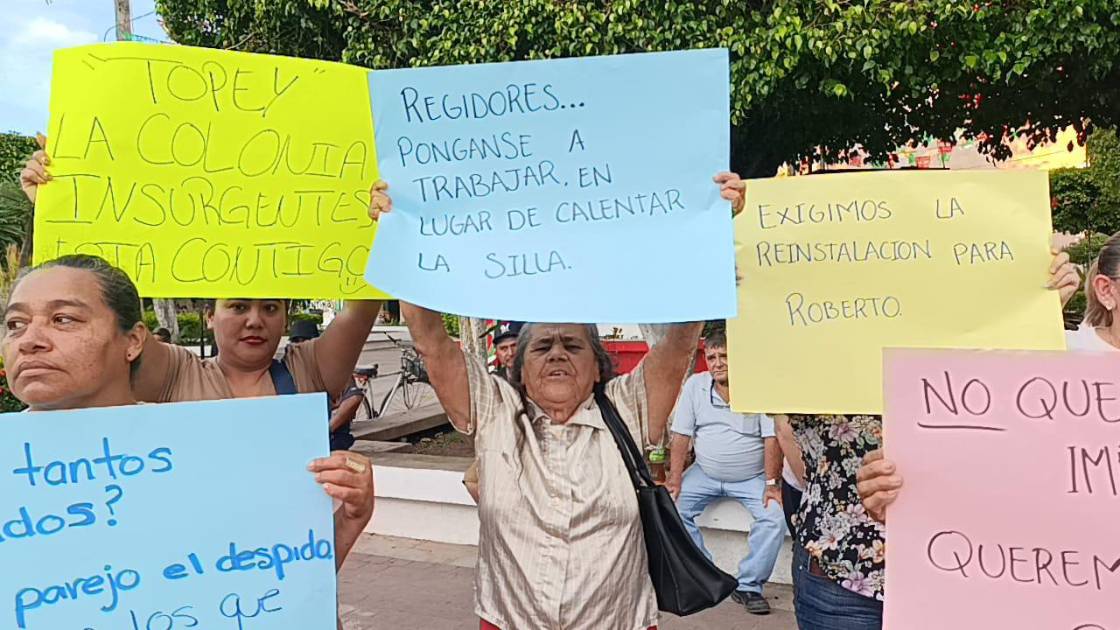 "TOPEY"
LA COLONIA
INSURGENTES
ESTA CONTIGO
REGIDORES...
PONGANSE A
TRABAJAR, EN
LUGAR DE CALENTAR
LA SILLA.
EXIGIMOS LA
REINSTALACION PARA
ROBERTO.
tantos
dos?
parejo el despido
los que
NO QUE
IM
QUEREM